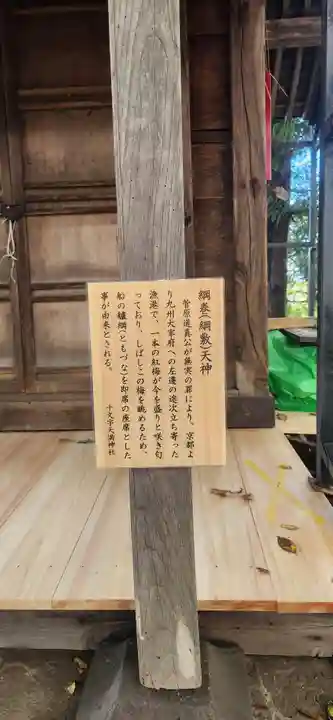 綱巻(綱敷)天神
菅原道真公が無実の罪により、京都よ
り九州大宰府への左遷の途次立ち寄った
漁港で、一本の紅梅が今を盛りと咲き匂
っており、しばしこの梅を眺めるため、
船の艫綱(ともづな)を即席の座席とした
事が由来とされる。
十文字天満神社